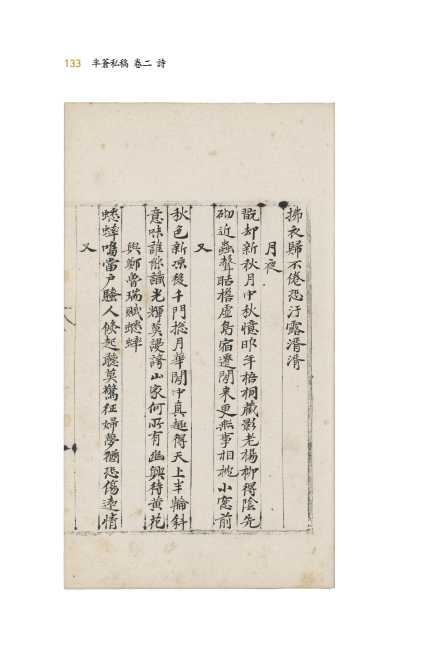 133 半蒼私稿 卷二 詩
拂衣歸不倦恐汙露湑湑
月夜
翫却新秋月中秋憶昨年梧桐藏影老楊柳得陰先
砌近蟲聲聒檐虛鳥宿遷閒來更無事相小窓前
又
秋色新凉後千門捴月華閒中真趣得天上半輪斜
意味誰能識光輝莫謾誇山家何所有幽興待黃花
與鄭魯瑞賦蟋蟀
蟋蟀鳴當戶騷人候起聽莫驚征婦夢恐傷遠情
又